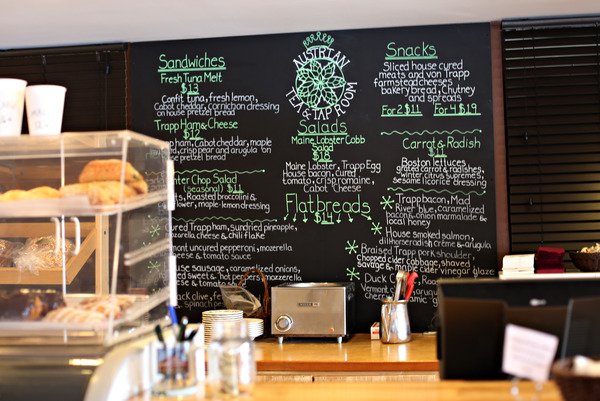 AUSTRIAN
TEA & TAP ROOM
Sandwiches
Fresh Tuna Melt
$13
Confit tuna, fresh lemon,
Cabot cheddar, cornichon dressing
on house pretzel bread
Trapp Ham & Cheese
$12
ham, Cabot cheddar, maple
, crisp pear and arugula on
pretzel bread
Winter Chop Salad
(Seasonal) $11
Roasted broccolini &
, maple-lemon dressing
Salads
Maine Lobster Cobb
Salad
$18
Maine Lobster, Trapp Egg
House bacon, cured
tomato, crisp romaine,
Cabot Cheese
Snacks
Sliced house cured
meats and von Trapp
farmstead cheeses
bakery bread, Chutney
and spreads
For 2 $11 For 4 $19
Carrot & Radish
$11
Boston lettuce,
grated carrots & radish
winter citrus supremes,
sesame licorice dressing
Flatbreads
$14
Cured Trapp ham, sundried pineapple,
mozzarella cheese & chili flake
mont uncured pepperoni, mozzarella
cheese & tomato sauce
House sausage, caramelized onions
& hot peppers
black olive,
spinach
Trapp bacon, Mad
River blue, caramelized
bacon & onion marmalade &
local honey
House smoked salmon,
dill horseradish crème & arugula
Braised Trapp pork shoulder,
chopped cider cabbage, shaved
& maple cider vinegar glaze
Duck
Vermont